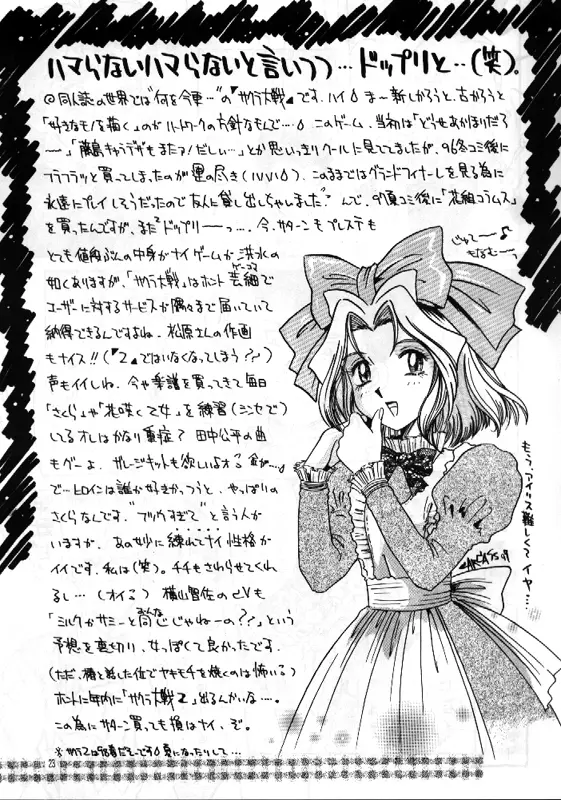 ハマらないハマらないと言いつつ…ドップリと‥(笑)。
◎同人誌の世界では"何を今更…"の『サクラ大戦』です。ハイ♢ま〜新しかろうと、古かろうと
「好きなモノを描く」のがハートワークの方針なもんで…♢ このゲーム、当初は「どうせあかほりだろ
ー」「藤島キャラデザもまたァ!だしぃ…」とか思いっきりクールに見てましたが、96冬コミ後に
フラフラッと買ってしまったのが運の尽き(いいい)。このままではグランドフィナーレを見る為に
永遠にプレイしそうだったので友人に貸し出しちゃいました んで、97頂コミ後に「花組コラムス」
を買ったんですが、まだドップリーーっ…。今、サターンもプレステも
とても値段ぶんの中身がナイゲームが洪水の
如くありますが、「サクラ大戦」はホント芸細で
ユーザーに対するサービスが隅々まで届いていて
納得できるんですよね。松原さんの作画
もナイス!!(『2』ではいなくなってしまう??)
声もイイしね。今や楽譜を買ってきて毎日
「さくら」や「花咲く乙女」を練習(シンセで)
してるオレはかなり重症? 田中公平の曲
もグーよ。ガレージキットも欲しいよォ 金が…。
で…ヒロインは誰が好きかっつうと、やっぱりの
さくらなんです。"ブリッすぎて"と言う人が
いますが、あの妙に練れてナイ性格が
イイです。私は(笑)。チチもさわらせてくれ
るし…(オイ) 横山智佐のCVも
「ミルクかサミーと同じじゃねーの??」という
予想を裏切り、女っぽくて良かったです。
(ただ、椿と話した位でヤキモチを焼くのは怖い)
ホントに年内に「サクラ大戦2」出るんかいな…。
この為にサターン買っても損はナイ、ぞ。
じゃて〜♪
もなむ〜っ
もう、アイリス難しくてイヤ…
23